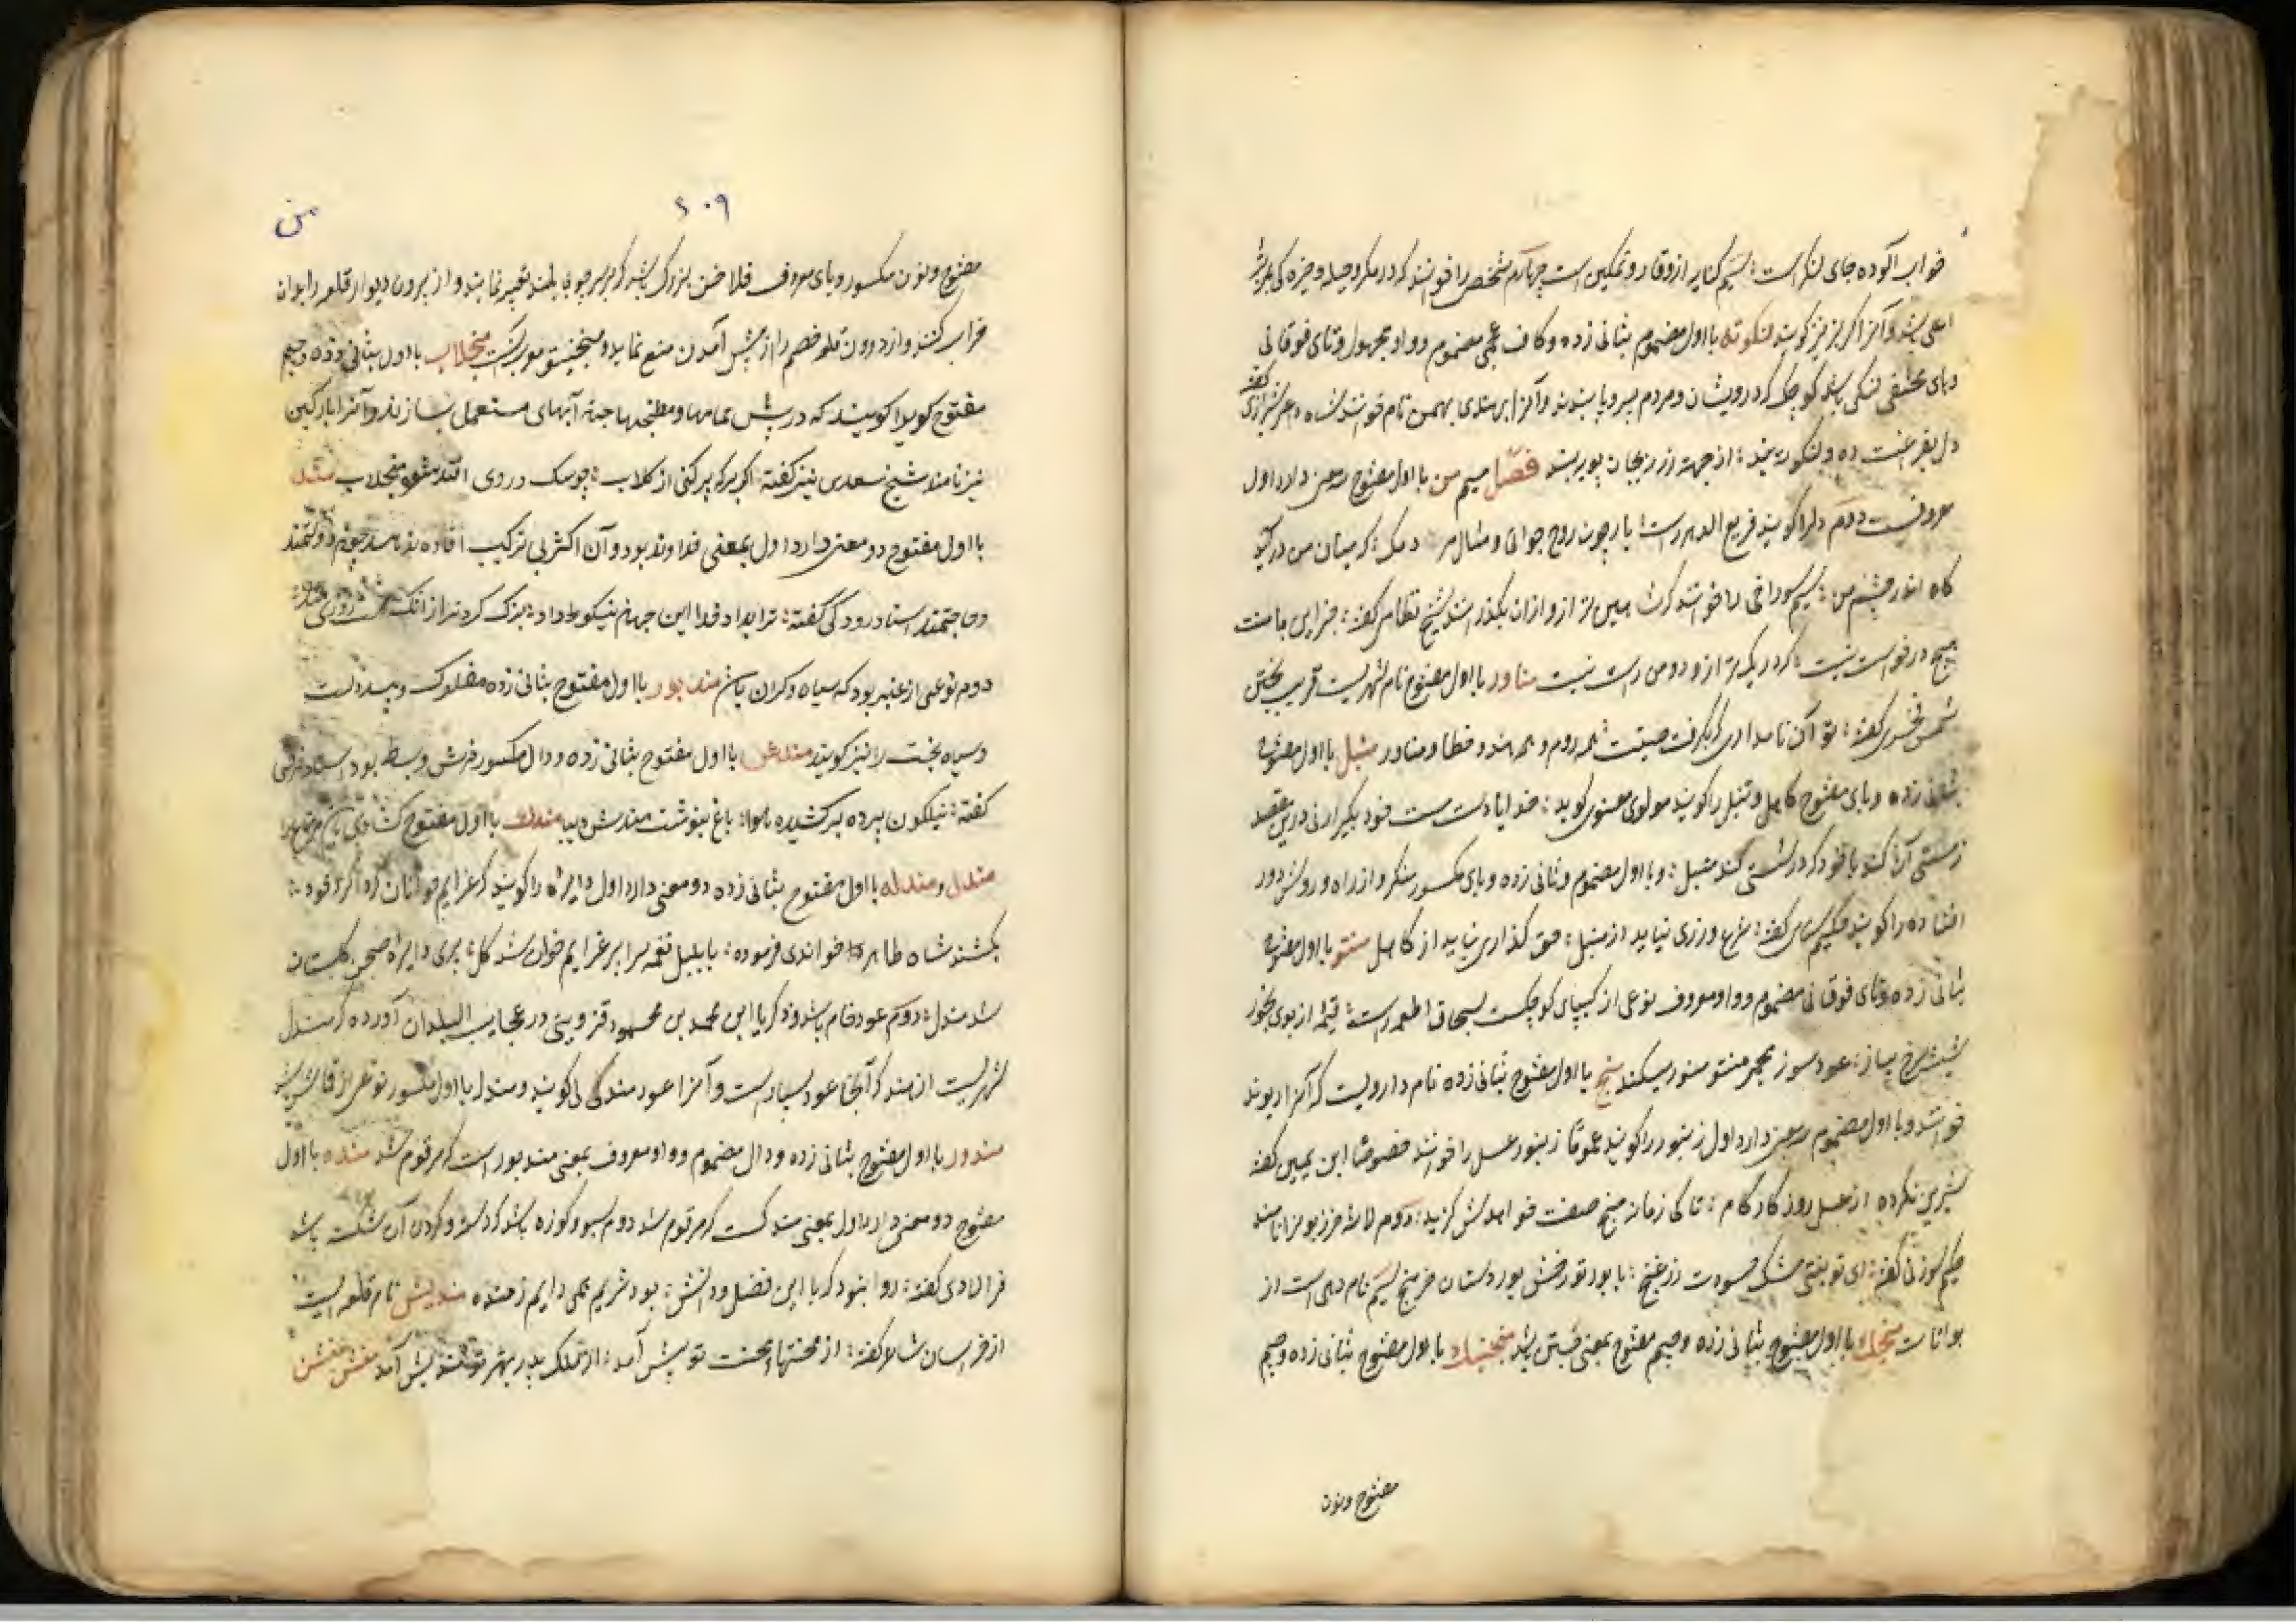 خواب آلوده جای لنگر است سیم کنایه از وقار و تمکین است چهارم شخص را خوانند که در مکر و حیله و خیره کی بمرتبهٔ
اعلی باشد و آنرا گربز نیز گویند لنکوته با اول مضموم بثانی زده و کاف عجمی مضموم و واو مجهول و تای فوقانی
و های مختفی لنکی باشد کوچک که درویشان و مردم بی سر و پا بندند و آنرا بهندی نام خوانند شاه داعی شیرازی گفته
دل ده و لنکوته بند از جهة بند فصل میم من با اول مفتوح سه معنی دارد اول
معروفست دوم دلرا گویند فریع الدهر راست یار چون روح و مثال که میان من در
کاه اندر من سیم سوراخی را خوانند که شاهین ترازو از آن بگذرانند شیخ نظامی گفته جز این با منت
هیچ درخواست نیست که در یک ترازو دو من راست نیست مناور با اول مفتوح نام شهریست قریب بختن
شمس فخری گفته تو آن نامداری که بگرفت صیتت همه روم و همه هند و خطا و مناور منبل با اول مفتوح
بثانی زده و بای مفتوح کاهل و تنبل را گویند مولوی معنوی گوید خدایا دست مست خود بگیر ارنی درین مقصد
ز مستی آن کند با خود که در مستی کند منبل و با اول مضموم و ثانی زده و بای مکسور منکر و از راه و روش دور
افتاده را گویند حکیم سنایی گفته شرع ورزی نیاید از منبل حق گذاری نیاید از کاهل منتو با اول مفتوح
بثانی زده و تای فوقانی مضموم و واو معروف نوعی از کیپای کوچکست بسحاق اطعمه راست قیله از بوی بخور
عود سوز مجمر منتو منور میکند منج با اول مفتوح بثانی زده نام دارویست که آنرا ریوند
خوانند و با اول مضموم سه معنی دارد اول زنبور را گویند عموما و زنبور عسل را خوانند خصوصا ابن یمین گفته
شیرین نکرده از عسل روزگار کام تا کی زمانه منج صفت خواهدش گزید دوم لاشهٔ خربزه را نامند
حکیم سوزنی گفته ای تو بغنی شک حسودت زر غنج با بور تو رخش پور دستان خر منج سیم نام دهی است از
بوانات منجک با اول مفتوح بثانی زده و جیم مفتوح بمعنی جستن باشد منجنیک با اول مفتوح بثانی زده و جیم
مفتوح و نون
۶۰۹
من
مفتوح و نون مکسور و یای معروف فلاخن بزرگ باشد که بر سر چوبی بلند تعبیر نمایند و از بیرون دیوار قلعه را بدان
خراب کنند و از درون قلعه خصم را از پیش آمدن منع نمایند و منجنیق معرب آنست منجلاب با اول بثانی زده و جیم
مفتوح گویرا گویند که در پس حمامها و مطبخها جهة آبهای مستعمل بسازند و آنرا پارگین
نیز نامند شیخ سعدی نیز گفته اگر برکه پر کنی از گلاب چو سگ در وی افتد شود منجلاب مند
با اول مفتوح دو معنی دارد اول بمعنی خداوند بود و آن اکثر بی ترکیب افاده نه نماید چون دولتمند
و حاجتمند استاد رودکی گفته ترا داد خدا این جهان نیکو داد بزرگ کردند از آنک
دوم نوعی از عنبر بود که سیاه و گران باشد مندبور با اول مفتوح بثانی زده مفلوک و بیدولت
و سیاه بخت را نیز گویند مندش با اول مفتوح بثانی زده و دال مکسور فرش و بسط بود استاد فرخی
گفته نیلگون پرده برکشیده هوا باغ بنوشت مندش دیبا مندک با اول مفتوح کشادی باشد
مندل و مندله با اول مفتوح بثانی زده دو معنی دارد اول دایره را گویند که عزایم خوانان گرداگرد خود
بکشند شاه طاهر خواندی فرموده با بلبل نغمه سرا بر عزایم خوان شد گل پری دایره صحن گلستان
شد مندل دوم عود خام باشد و ذکریا ابن محمد بن محمود قزوینی در عجایب البلدان آورده که مندل
شهریست از هند که آنجا عود بسیار است و آنرا عود مندلی گویند و مندل با اول مکسور نوعی از قماش باشد
مندور با اول مفتوح بثانی زده و دال مضموم و واو معروف بمعنی مندبور است که مرقوم شد منده با اول
مفتوح دو معنی دارد اول بمعنی مندک است که مرقوم شد دوم سبو و کوزه باشد که دسته و گردن آن شکسته باشد
فرالادی گفته روا نبود که با این فضل و دانش بود شربم همی دایم ز منده مندیش نام قلعه ایست
از خراسان شالار گفته از محنتها محنت تو پیش آمد از ملک پدر بهر تو مندیش آمد منش منش